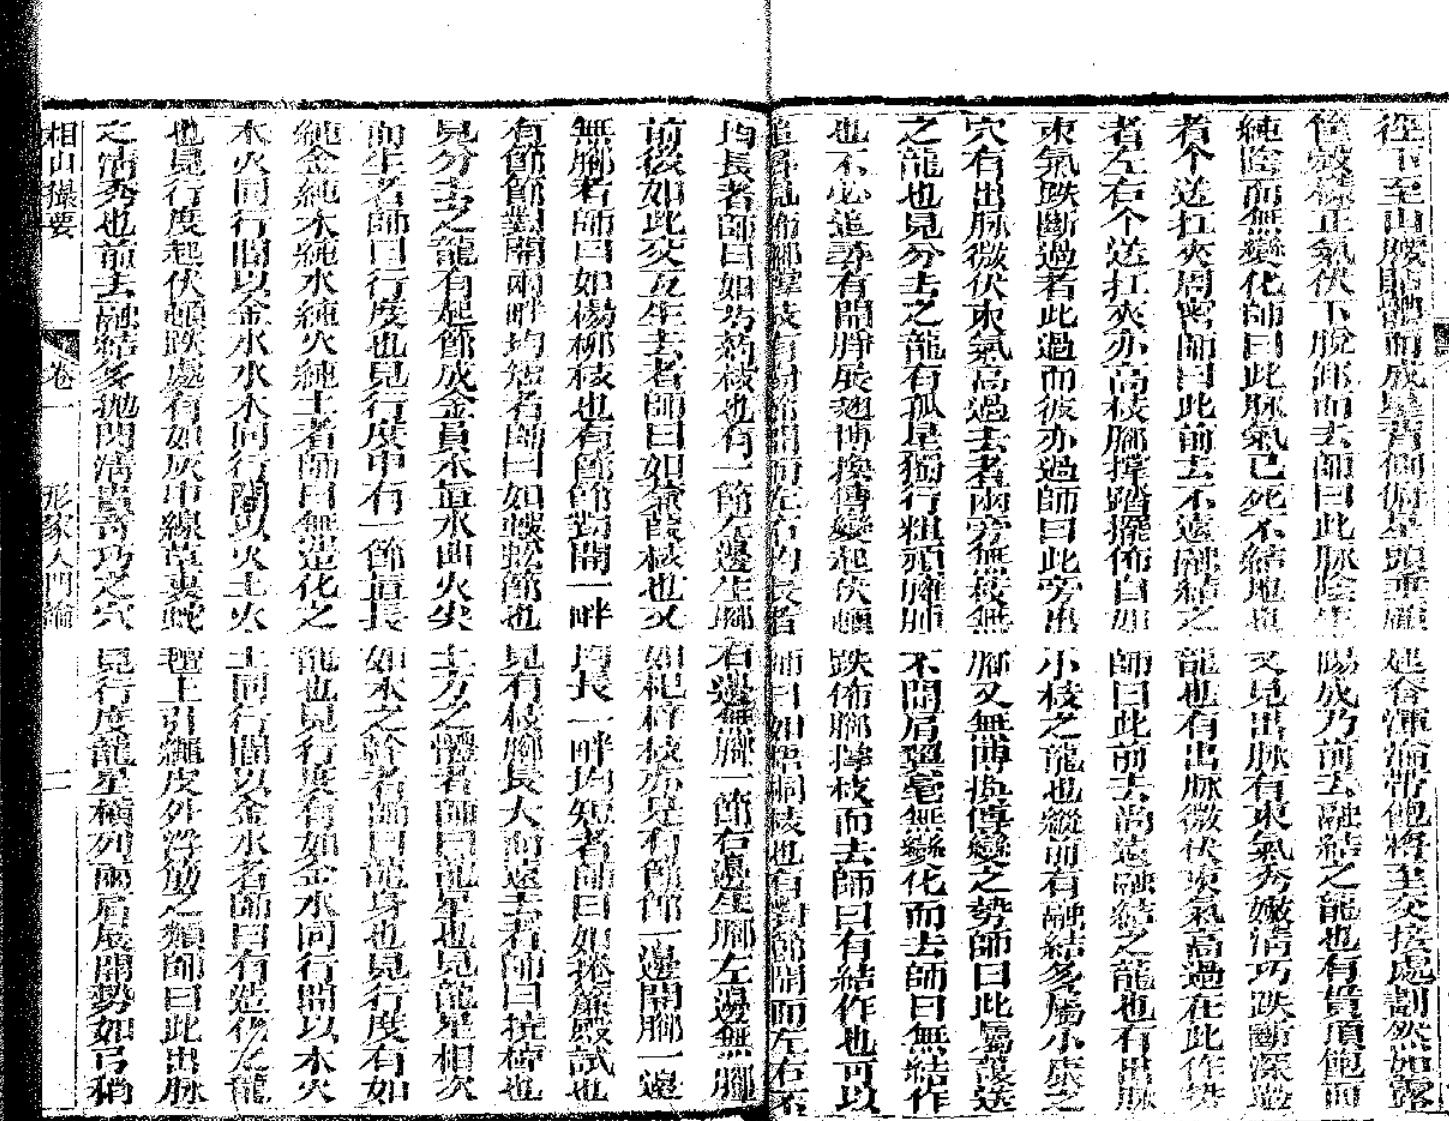 徑下至山腰貼體而成星背側俯星頭垂顧建吞渾淪帶飽將至交接處劃然如露
節殺樣正氣伏下脫卸而去師曰此脉陰生陽成乃前去融結之龍也有貫頂飽而
純陰而無變化師曰此脉氣已死不結地也又見出脉有束氣秀嫩清巧跌斷深遠
者个送扛夾周密師曰此前去不遠融結之龍也有出脉微伏束氣高過在此作勢
者左右个送扛夾亦高枝腳撑踏擺佈自如師曰此前去尚遠融結之龍也有出脉
束氣跌斷過者此過而彼亦過師曰此旁出小枝之龍也縱前有融結多屬小康之
穴有出脉微伏束氣高過去者兩旁無枝無腳又無博換傳變之勢師曰此屬護送
之龍也見分去之龍有孤星獨行粗頑臃腫不開肩翼毫無變化而去師曰無結作
也不必追尋有開膊展翅博換傳變起伏頓跌佈腳撑枝而去師曰有結作也可以
追尋見佈腳撑枝有對節開而左右均長者師曰如梧桐枝也有對節開而左右不
均長者師曰如芍藥枝也有一節左邊生腳右邊無腳一節右邊生腳左邊無腳
前後如此交互生去者師曰如蒹葭枝也又如杞梓枝亦是有節節一邊開腳一邊
無腳者師曰如楊柳枝也有節節對開一畔均長一畔均短者師曰如捲簾殿試也
有節節對開兩畔均短者師曰如蜈蚣節也見有枝腳長大而遠去者師曰撓棹也
見分去之龍有起節成金員木直水曲火尖土方之體者師曰龍星也見龍星相次
而生者師曰行度也見行度中有一節直長如木之幹者師曰龍身也見行度有如
純金純木純水純火純土者師曰無造化之龍也見行度有如金水同行間以木火
木火同行間以金水水木同行間以火土火土同行間以金水者師曰有造化之龍
也見行度起伏頓跌處有如灰中線草裏蛇壇上引繩皮外浮筋之類師曰此出脉
之清秀也前去融結多拋閃清貴奇巧之穴見行度龍星橫列兩肩展開勢如弓稍
相山撮要 卷一 形家入門論 二